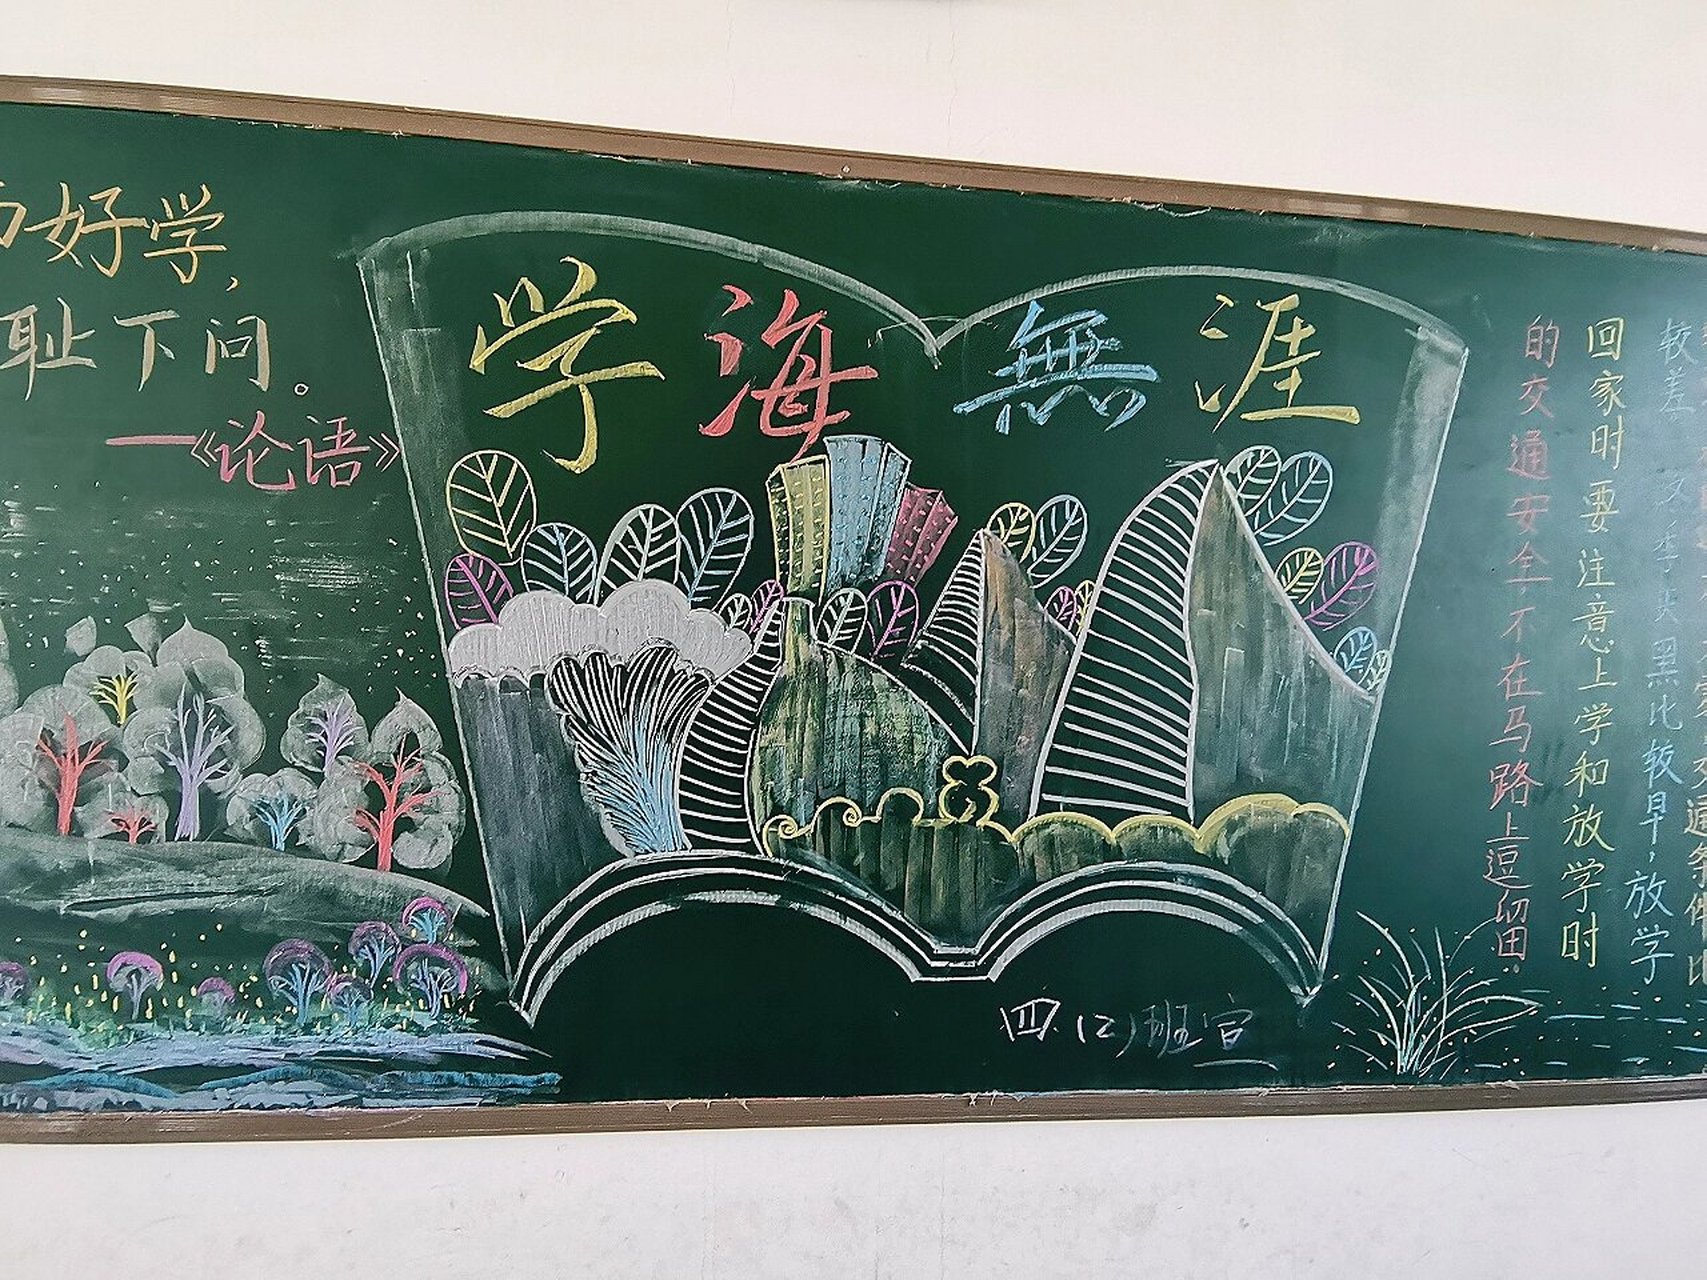 好学，
耻下问。
—《论语》
学海無涯
四(2)班宣
交通条件比
较差 冬季天黑比较早，放学
回家时要注意上学和放学时
的交通安全不在马路上逗留.